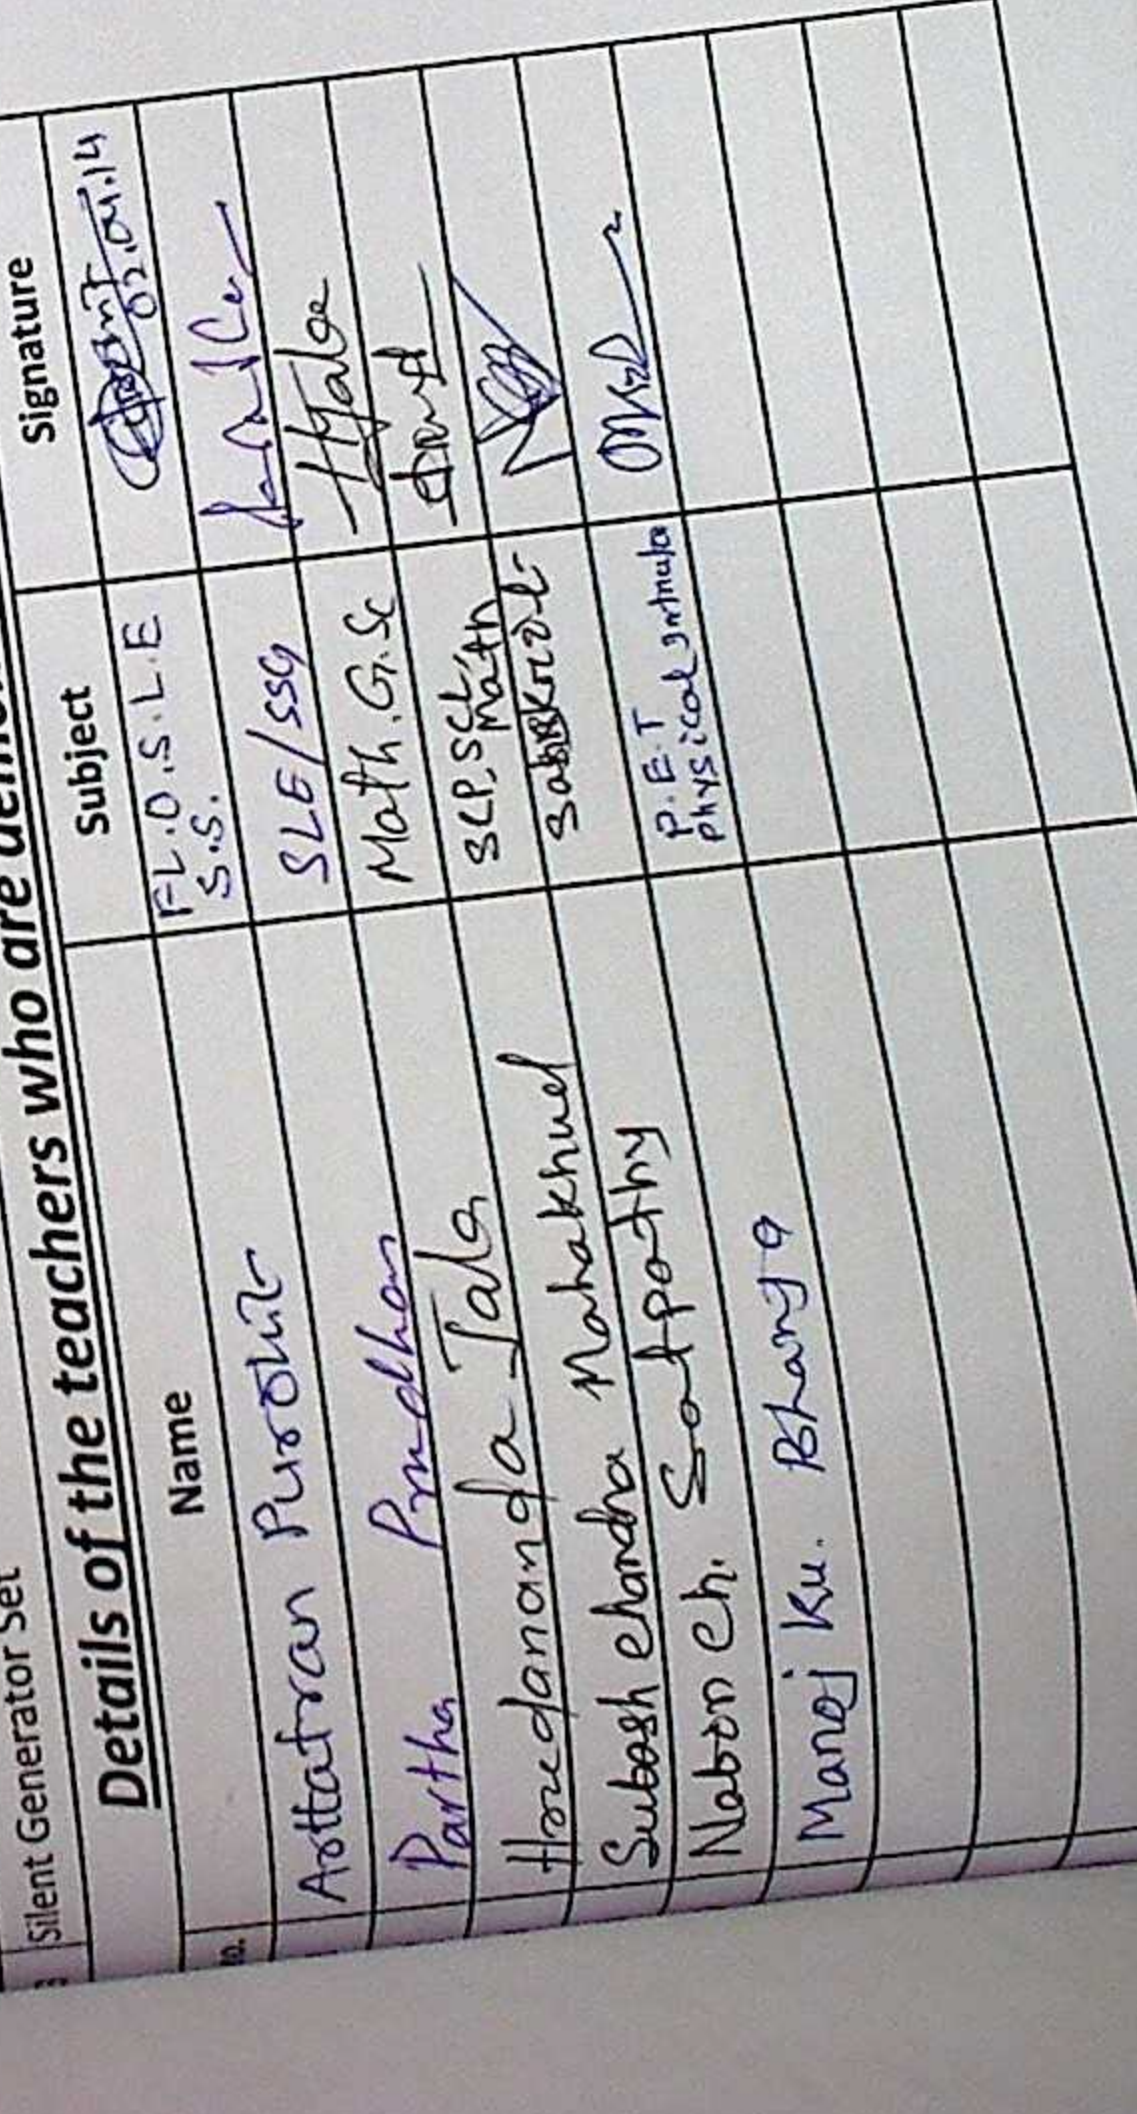 Silent Generator Set
Details of the teachers who are
no. Name Subject Signature
Arttatran Purohit F.L.O.S.L.E S.S. 02.04.14
Partha Pradhan SLE/SSG
Hrudananda Jala Math.G.Sc HJala
Subash chandra Mahakhud SCP, SCL, Math
Nabin Ch. Satpathy
Manoj Ku. Bhanja P.E.T Physical